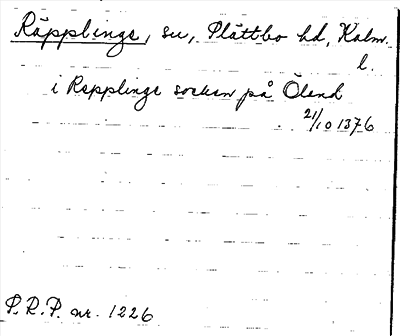 Räpplinge, sn, Plåttbo hd, Kalm.
l.
i Repplinge socken på Öland
21/10 1376
P.R.P. nr. 1226